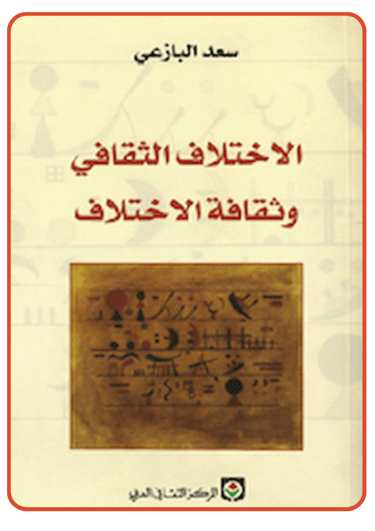 سعد البازعي
الاختلاف الثقافي
وثقافة الاختلاف
المركز الثقافي العربي